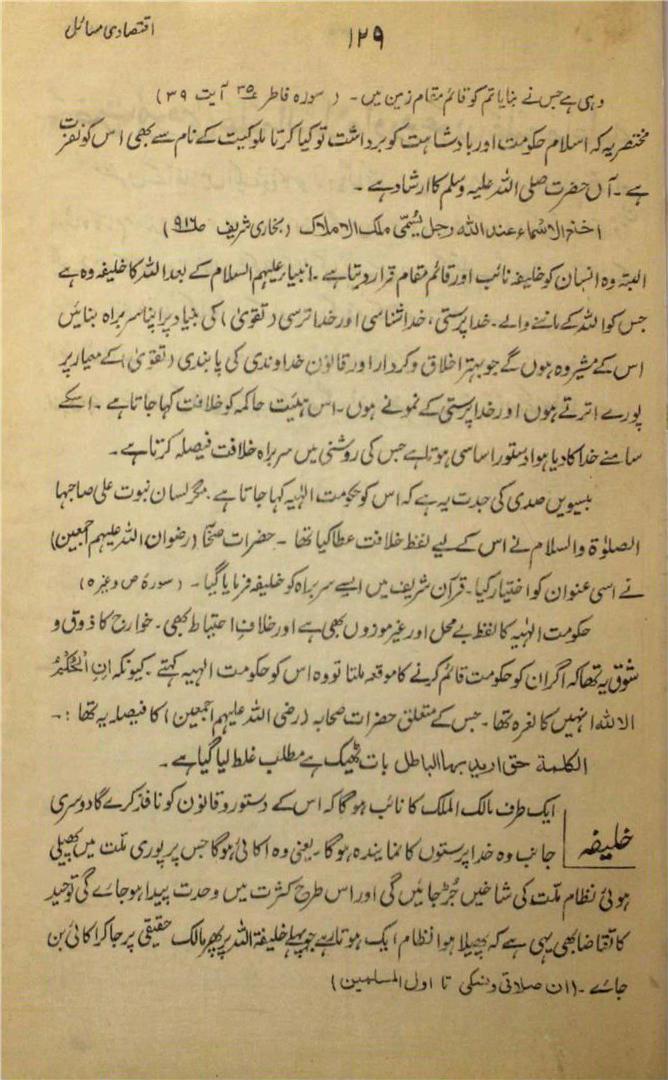 اقتصادی مسائل
۱۲۹
وہی ہے جس نے بنایا تم کو قائم مقام زمین میں۔ (سورہ فاطر ۳۵ آیت ۳۹)
مختصر یہ کہ اسلام حکومت اور بادشاہت کو برداشت تو کیا کرتا ملوکیت کے نام سے بھی اس کو نفرت
ہے۔ آں حضرت صلی اللہ علیہ وسلم کا ارشاد ہے۔
اخنع الاسماء عند اللہ رجل یسمّی ملک الاملاک (بخاری شریف ص۹۱۶)
البتہ وہ انسان کو خلیفہ نائب اور قائم مقام قرار دیتا ہے۔ انبیاء علیہم السلام کے بعد اللہ کا خلیفہ وہ ہے
جس کو اللہ کے ماننے والے۔ خدا پرستی، خدا شناسی اور خدا ترسی (تقویٰ) کی بنیاد پر اپنا سربراہ بنائیں
اس کے مشیر وہ ہوں گے جو بہتر اخلاق و کردار اور قانون خداوندی کی پابندی (تقویٰ) کے معیار پر
پورے اترتے ہوں اور خدا پرستی کے نمونے ہوں۔ اس ہیئت حاکمہ کو خلافت کہا جاتا ہے۔ اسکے
سامنے خدا کا دیا ہوا دستور اساسی ہوتا ہے جس کی روشنی میں سربراہ خلافت فیصلہ کرتا ہے۔
بیسویں صدی کی جدت یہ ہے کہ اس کو حکومت الٰہیہ کہا جاتا ہے۔ مگر لسان نبوت علی صاحبہا
الصلوٰۃ والسلام نے اس کے لیے لفظ خلافت عطا کیا تھا۔ حضرات صحابہ (رضوان اللہ علیہم اجمعین)
نے اسی عنوان کو اختیار کیا۔ قرآن شریف میں ایسے سربراہ کو خلیفہ فرمایا گیا۔ (سورۂ ص وغیرہ)
حکومت الٰہیہ کا لفظ بے محل اور غیر موزوں بھی ہے اور خلاف احتیاط بھی۔ خوارج کا ذوق و
شوق یہ تھا کہ اگر ان کو حکومت قائم کرنے کا موقعہ ملتا تو وہ اس کو حکومت الہیہ کہتے۔ کیونکہ ان الحکم
الا للہ انہیں کا نعرہ تھا۔ جس کے متعلق حضرات صحابہ (رضی اللہ علیہم اجمعین) کا فیصلہ یہ تھا :۔
الکلمة حق ارید بہا الباطل بات ٹھیک ہے مطلب غلط لیا گیا ہے۔
خلیفہ
ایک طرف مالک الملک کا نائب ہو گا کہ اس کے دستور و قانون کو نافذ کرے گا دوسری
جانب وہ خدا پرستوں کا نمایندہ ہو گا۔ یعنی وہ اکائی ہو گا جس پر پوری ملت میں پھیلی
ہوئی نظام ملت کی شاخیں جُڑ جائیں گی اور اس طرح کثرت میں وحدت پیدا ہو جائے گی توحید
کا تقاضا بھی یہی ہے کہ پھیلا ہوا نظام ایک ہوتا رہے جو پہلے خلیفۃ اللہ پر پھر مالک حقیقی پر جا کر اکائی بن
جائے۔ (ان صلاتی ونسکی تا اول المسلمین)